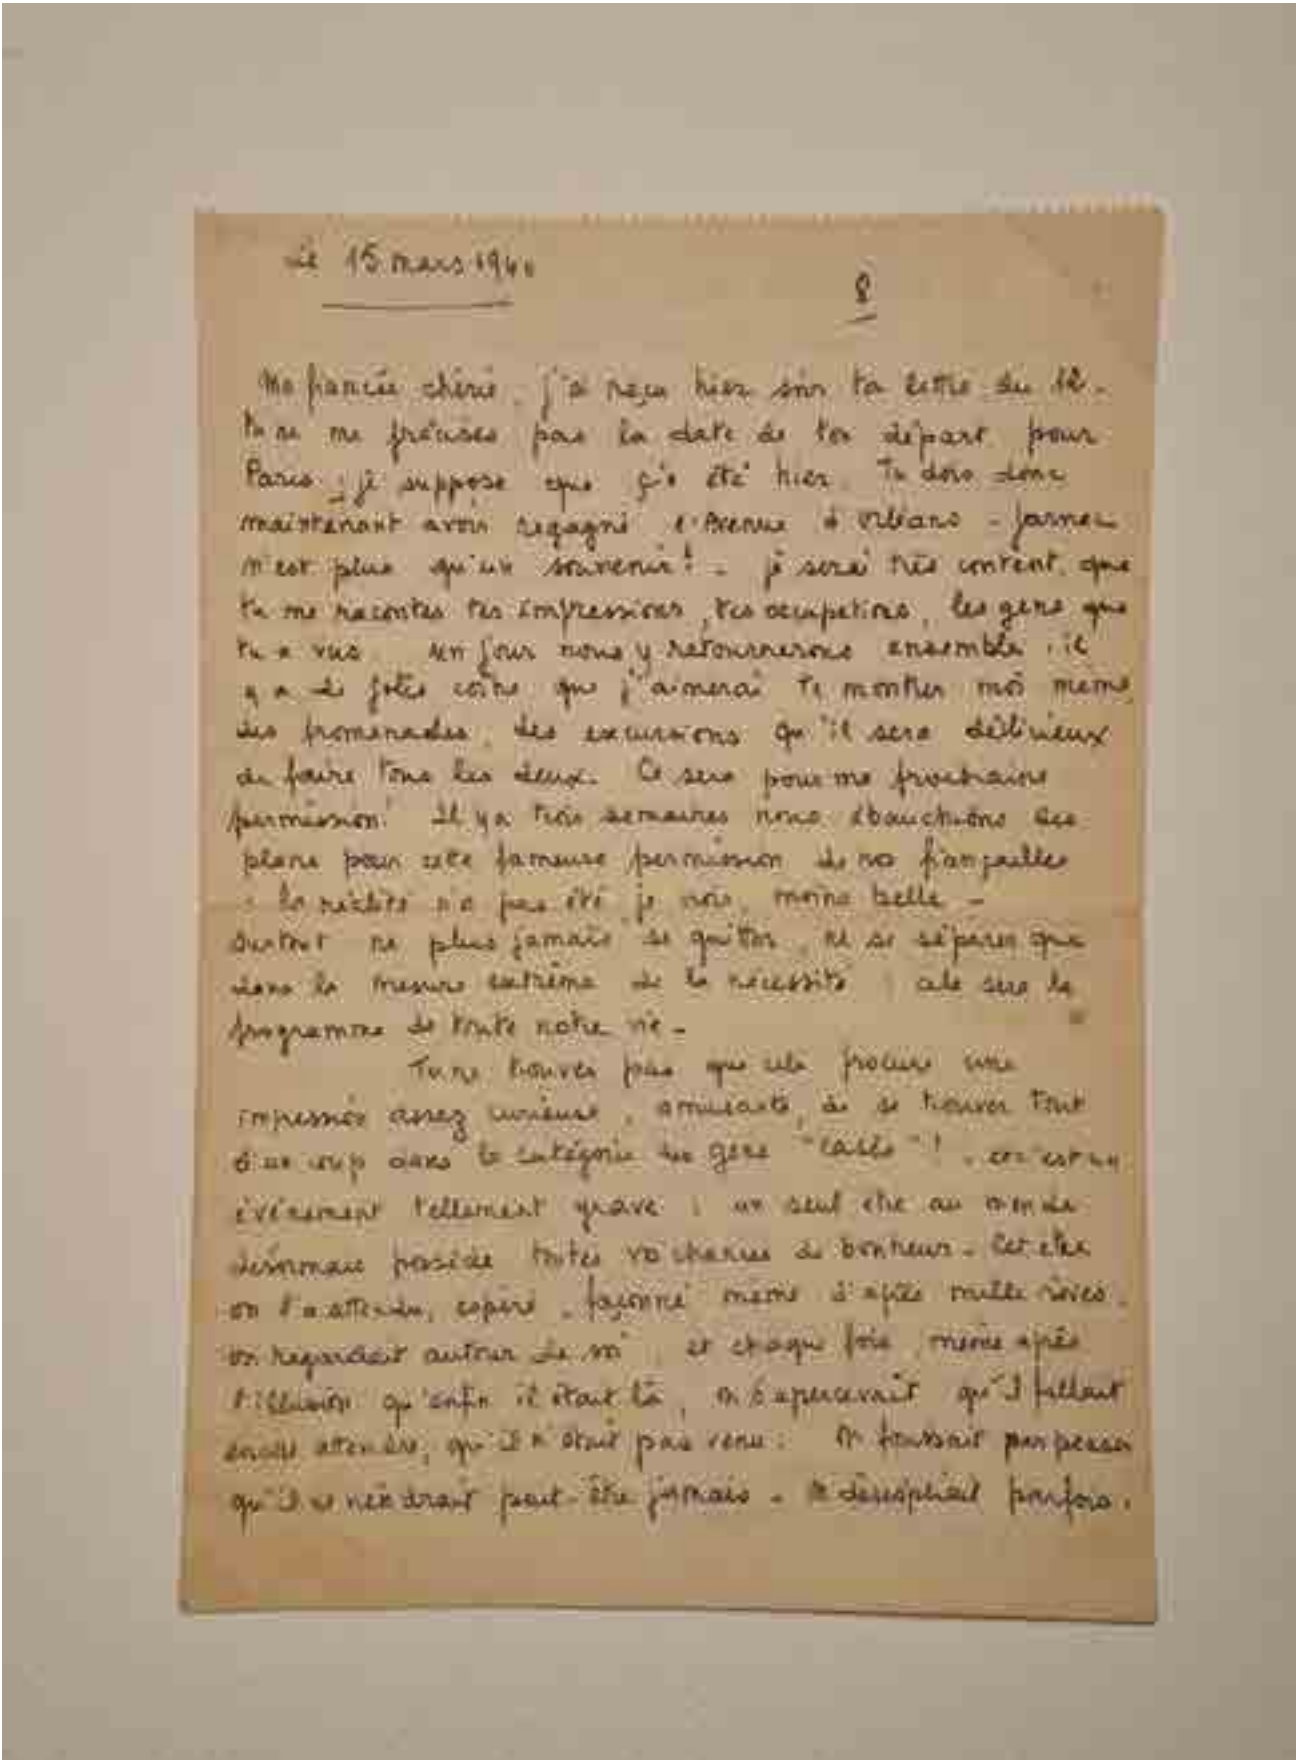 Le 15 mars 1940
8
Ma fiancée chérie, j'ai reçu hier soir ta lettre du 12.
Tu ne me précises pas la date de ton départ pour
Paris ; je suppose que ç'a été hier. Tu dois donc
maintenant avoir regagné l'Avenue d'Orléans - Jarnac
n'est plus qu'un souvenir ! - je serai très content que
tu me racontes tes impressions, tes occupations, les gens que
tu a vus. Un jour nous y retournerons ensemble, il
y a de jolis coins que j'aimerai te montrer moi même
des promenades, des excursions qu'il sera délicieux
de faire tous les deux. Ce sera pour ma prochaine
permission ! Il y a trois semaines nous ébauchions des
plans pour cette fameuse permission de nos fiançailles
: la réalité n'a pas été, je crois, moins belle -
Surtout ne plus jamais se quitter, ne se séparer que
dans la mesure extrême de la nécessité : cela sera le
programme de toute notre vie -
Tu ne trouves pas que cela procure une
impression assez curieuse, amusante, de se trouver tout
d'un coup dans la catégorie des gens "casés" ! c'est un
événement tellement grave : un seul être au monde
désormais possède toutes vos chances de bonheur - Cet être
on l'a attendu, espéré, façonné même d'après mille rêves.
on regardait autour de soi, et chaque fois, même après
l'illusion qu'enfin il était là, on s'apercevait qu'il fallait
encore attendre, qu'il n'était pas venu. On finissait par penser
qu'il ne viendrait peut-être jamais - On désespérait parfois.